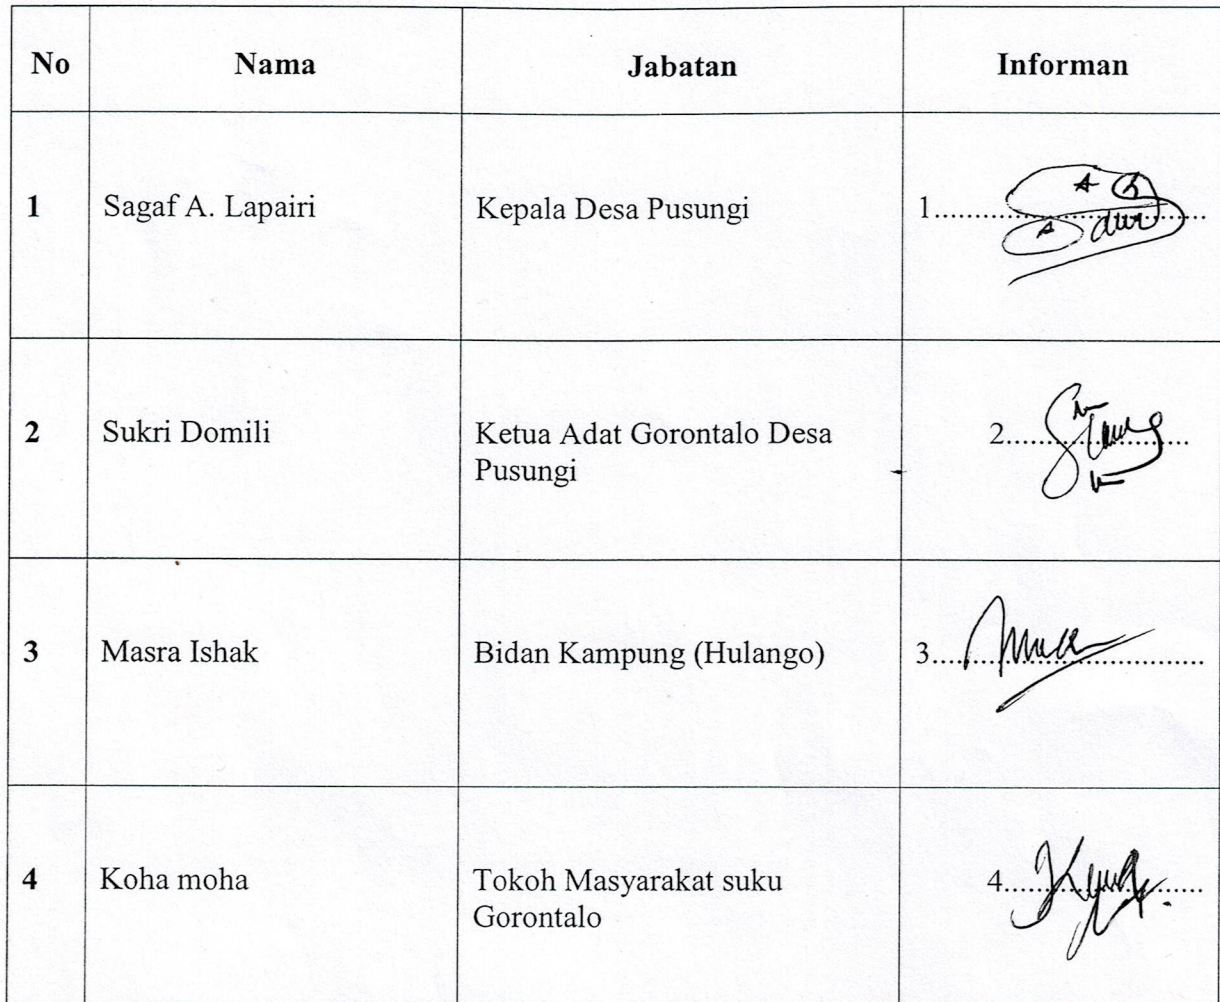 No Nama Jabatan Informan
1 Sagaf A. Lapairi Kepala Desa Pusungi 1..............................
2 Sukri Domili Ketua Adat Gorontalo Desa 2..............................
Pusungi
3 Masra Ishak Bidan Kampung (Hulango) 3..............................
4 Koha moha Tokoh Masyarakat suku 4..............................
Gorontalo